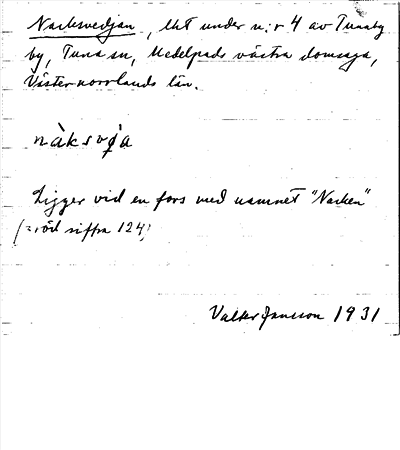 Nacksvedjan, lht under n:r 4 av Tunaby
by, Tuna sn, Medelpads västra domsaga,
Västernorrlands län.
nàksvә̀a
Ligger vid en fors med namnet "Nacken"
(= röd siffra 124)
Valter Jansson 1931